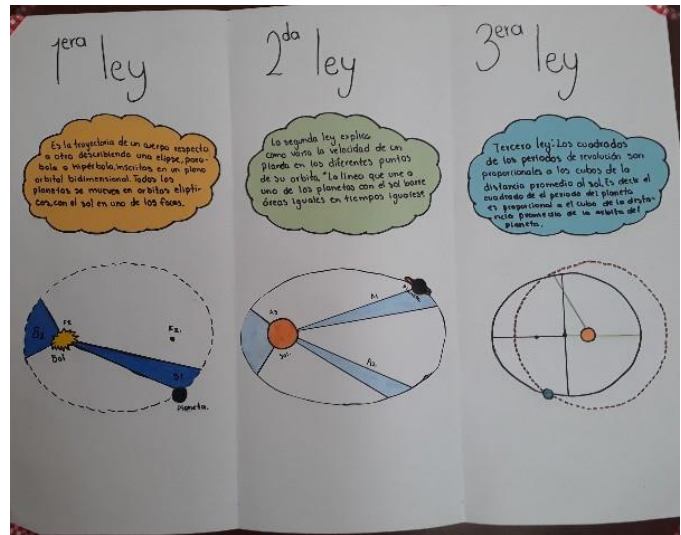 1era ley
Es la trayectoria de un cuerpo respecto
a otro describiendo una elipse, pará-
bola o hipérbola, inscritas en un plano
orbital bidimensional. Todos los
planetas se mueven en orbitas elipti-
cas, con el sol en uno de los focos.
F2.
Sol
Planeta.
2da ley
La segunda ley explica
como varia la velocidad de un
planeta en los diferentes puntos
de su orbita. "La linea que une a
uno de los planetas con el sol barre
áreas iguales en tiempos iguales"
A1
A2
Sol.
3era ley
Tercera ley: Los cuadrados
de los periodos de revolución son
proporcionales a los cubos de la
distancia promedio al sol. Es decir el
cuadrado de el periodo del planeta
es proporcional a el cubo de la dista-
ncia promedio de la orbita del
planeta.